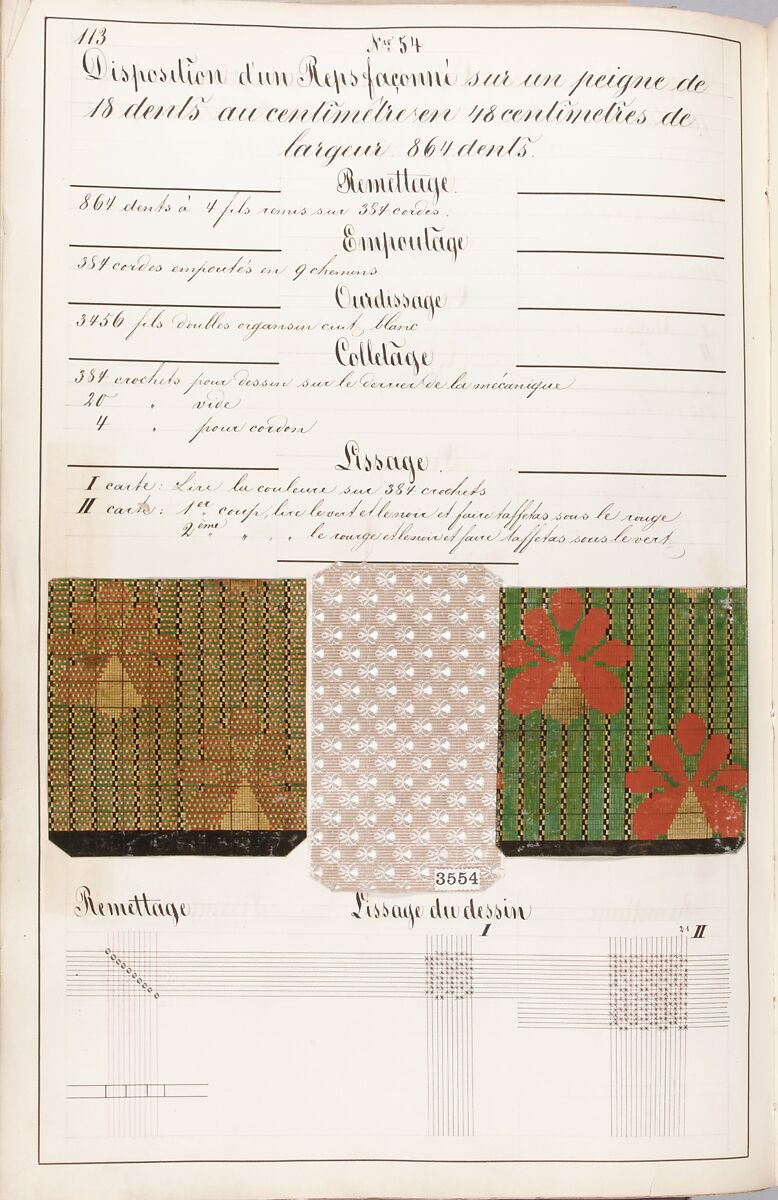 113
Nro 54
Disposition d'un Reps façonné sur un peigne de
18 dents au centimétre en 48 centimétres de
largeur. 864 dents.
Remettage.
864 dents à 4 fils remis sur 384 cordes.
Empoutage
384 cordes empoutés en 9 chemins
Ourdissage
3456 fils doubles organsin cuit, blanc
Colletage
384 crochets pour dessin sur le derrier de la mécanique
20 " vide
4 " pour cordon
Lissage.
I carte: Lire la couleure sur 384 crochets
II carte: 1er coup, lire le vert et le noir et faire taffetas sous le rouge
2ème " " . le rourge et le noir et faire taffetas sous le vert
3554
Remettage
Lissage du dessin
I
21 II